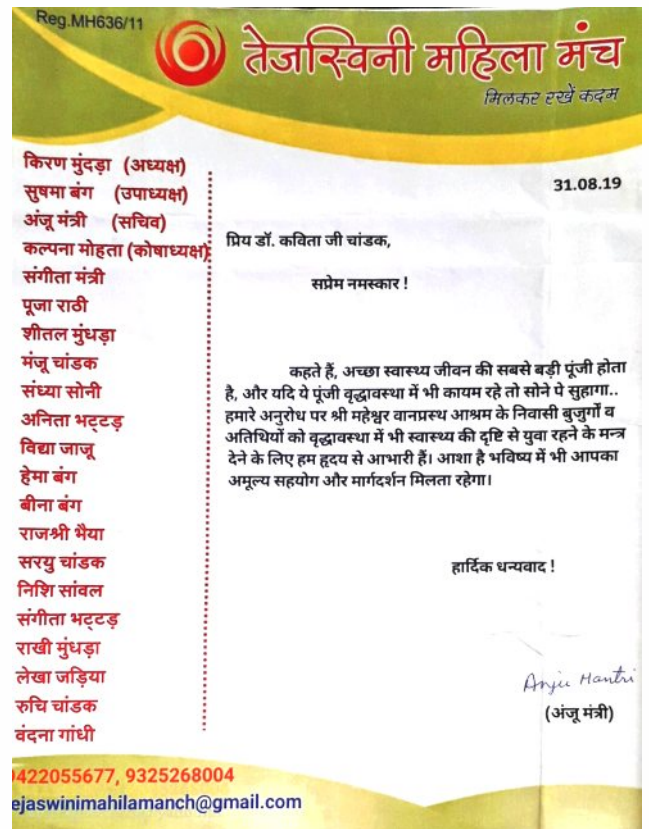 Reg.MH636/11
तेजस्विनी महिला मंच
मिलकर रखें कदम
किरण मुंदड़ा (अध्यक्ष)
सुषमा बंग (उपाध्यक्ष)
अंजू मंत्री (सचिव)
कल्पना मोहता (कोषाध्यक्ष)
संगीता मंत्री
पूजा राठी
शीतल मुंधड़ा
मंजू चांडक
संध्या सोनी
अनिता भट्टड़
विद्या जाजू
हेमा बंग
बीना बंग
राजश्री भैया
सरयु चांडक
निशि सांवल
संगीता भट्टड़
राखी मुंधड़ा
लेखा जड़िया
रुचि चांडक
वंदना गांधी
31.08.19
प्रिय डॉ. कविता जी चांडक,
सप्रेम नमस्कार !
कहते हैं, अच्छा स्वास्थ्य जीवन की सबसे बड़ी पूंजी होता
है, और यदि ये पूंजी वृद्धावस्था में भी कायम रहे तो सोने पे सुहागा..
हमारे अनुरोध पर श्री महेश्वर वानप्रस्थ आश्रम के निवासी बुजुर्गों व
अतिथियों को वृद्धावस्था में भी स्वास्थ्य की दृष्टि से युवा रहने के मन्त्र
देने के लिए हम हृदय से आभारी हैं। आशा है भविष्य में भी आपका
अमूल्य सहयोग और मार्गदर्शन मिलता रहेगा।
हार्दिक धन्यवाद !
Anju Mantri
(अंजू मंत्री)
9422055677, 9325268004
ejaswinimahilamanch@gmail.com